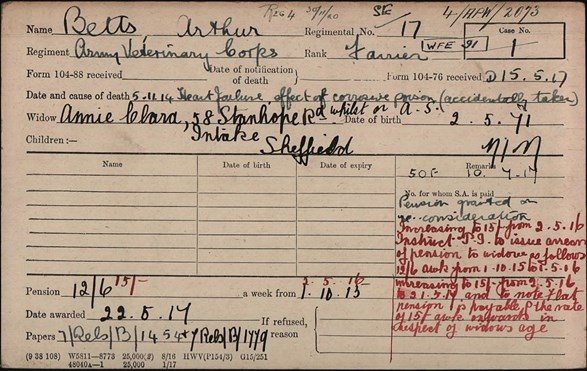 Reg 4 30/11/20 StE 4/APW/2073
Name Betts, Arthur Regimental No. 17 Case No.
Regiment Army Veterinary Corps Rank Farrier WFE 91 1
Form 104-88 received Date of notification of death Form 104-76 received D15.5.17
Date and cause of death 5.11.14 Heart failure, effect of corrosive poison (accidentally taken)
Widow Annie Clara, 58 Stanhope Rd whilst on A.S. Date of birth 2.5.71
Children:— Intake Sheffield
Name Date of birth Date of expiry Remarks
50F 10.7.17
No. for whom S.A. is paid
Pension granted on
re-consideration
Increasing to 15/- from 2.5.16
Instruct P.I. to issue arrears
of pension to widow as follows
12/6 a wk from 1.10.15 to 1.5.16
increasing to 15/- from 2.5.16
to 21.5.17 and to note that
pension is payable, the rate
of 15/- a wk onwards in
respect of widows age
Pension 12/6 15/- a week from 1.10.15 2.5.16
Date awarded 22.5.17 If refused, reason
Papers 7/Rels/B/1454 + 7/Rels/B/1779
(9 38 108) W5811—8773 25,000(2) 8/16 HWV(P154/3) G15/251
48040A—1 25,000 1/17